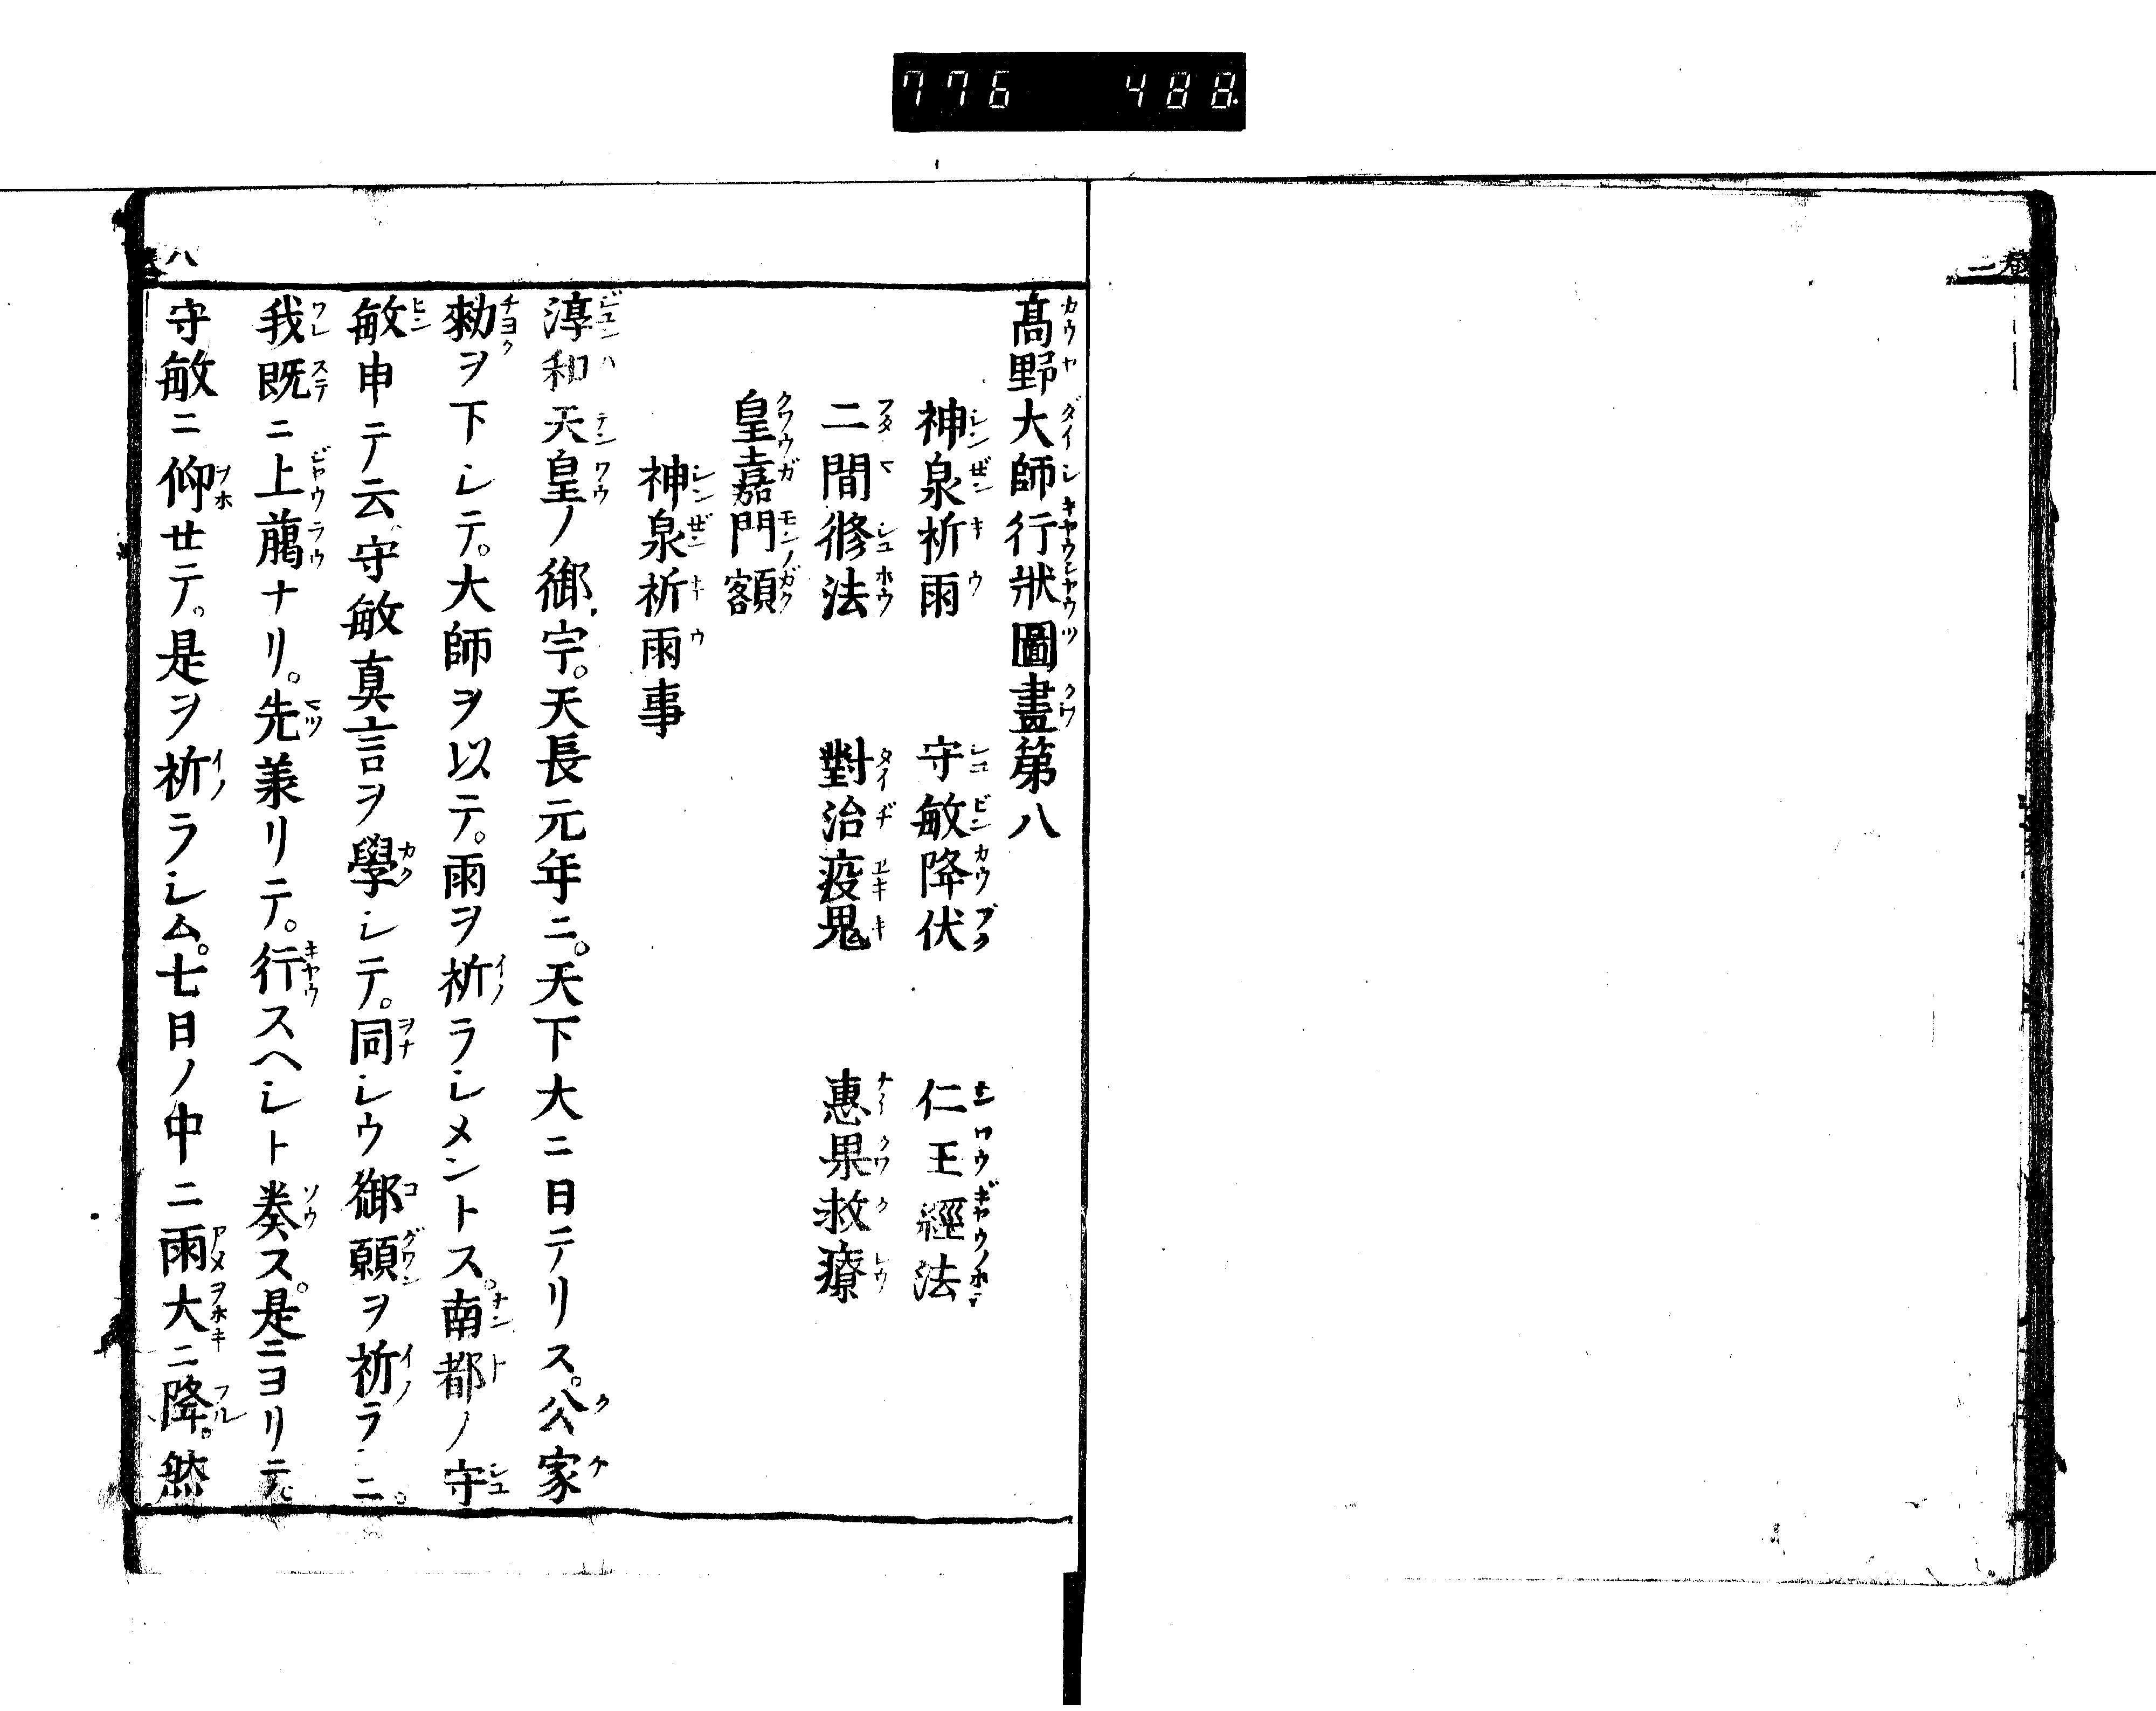 776 488.
高野大師行状圖畫第八
神泉祈雨 守敏降伏 仁王經法
二間修法 對治疫鬼 惠果救療
皇嘉門額
神泉祈雨事
淳和天皇ノ御宇。天長元年ニ。天下大ニ日テリス。公家
勅ヲ下シテ。大師ヲ以テ。雨ヲ祈ラシメントス。南都ノ守
敏申テ云。守敏真言ヲ學シテ。同シウ御願ヲ祈ラニ。
我既ニ上﨟ナリ。先兼リテ。行スヘシト奏ス。是ニヨリテ。
守敏ニ仰セテ。是ヲ祈ラシム。七日ノ中ニ雨大ニ降。然
八